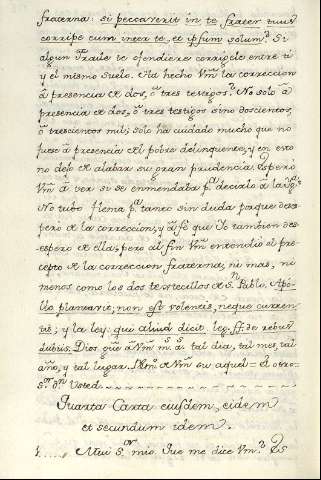 fraterna: si peccaverit in te frater tuus
corripe eum inter te, et ipsum solum? Si
algun fraile te ofendiere corrigele entre ti
y el mismo suelo. Ha hecho Vm̃ la correccion
á presencia de dos, ô tres testigos? No solo á
presencia de dos, ô tres testigos sino doscientos,
ô trescientos mil; solo ha cuidado mucho que no
fuese á presencia del pobre delinquente, y en esto
no dejo de alabar su gran prudencia. Espero
Vm̃ á ver si se enmendaba pª decirlo á la
No tubo flema pª tanto sin duda porque deses-
pero de la correccion, y â fe que Yo tambien des-
espero de ella; pero al fin Vm̃ entendio el pre-
cepto de la correccion fraterna, ni mas, ni
menos como los dos textecillos de Sn Pablo. Apo-
llo plantavit, non est volentis, neque curren-
tis; y la ley: qui aliud dicit leg. ff. de rebus
dubiis. Dios gũe â Vm̃ ms as tal dia, tal mes, tal
año, y tal lugar. de Vm̃ su aquel = el otro =
Sor Dn Usted
Quarta Carta eiusdem, eidem
et secundum idem.
Mui Sor mio. Que me dice Vm?